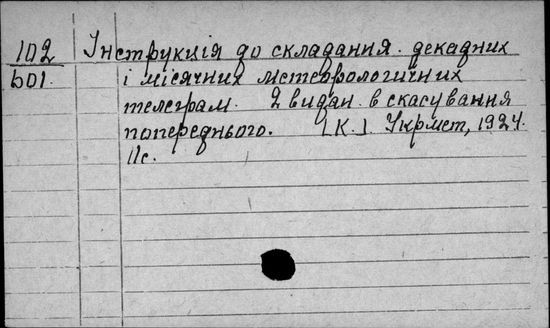 102 Інструкція до складання декадних
b01. і місячних метеорологичних
телеграм. 2 видан. в скасування
попереднього. [К.]. Укрмет, 1924.
11с.